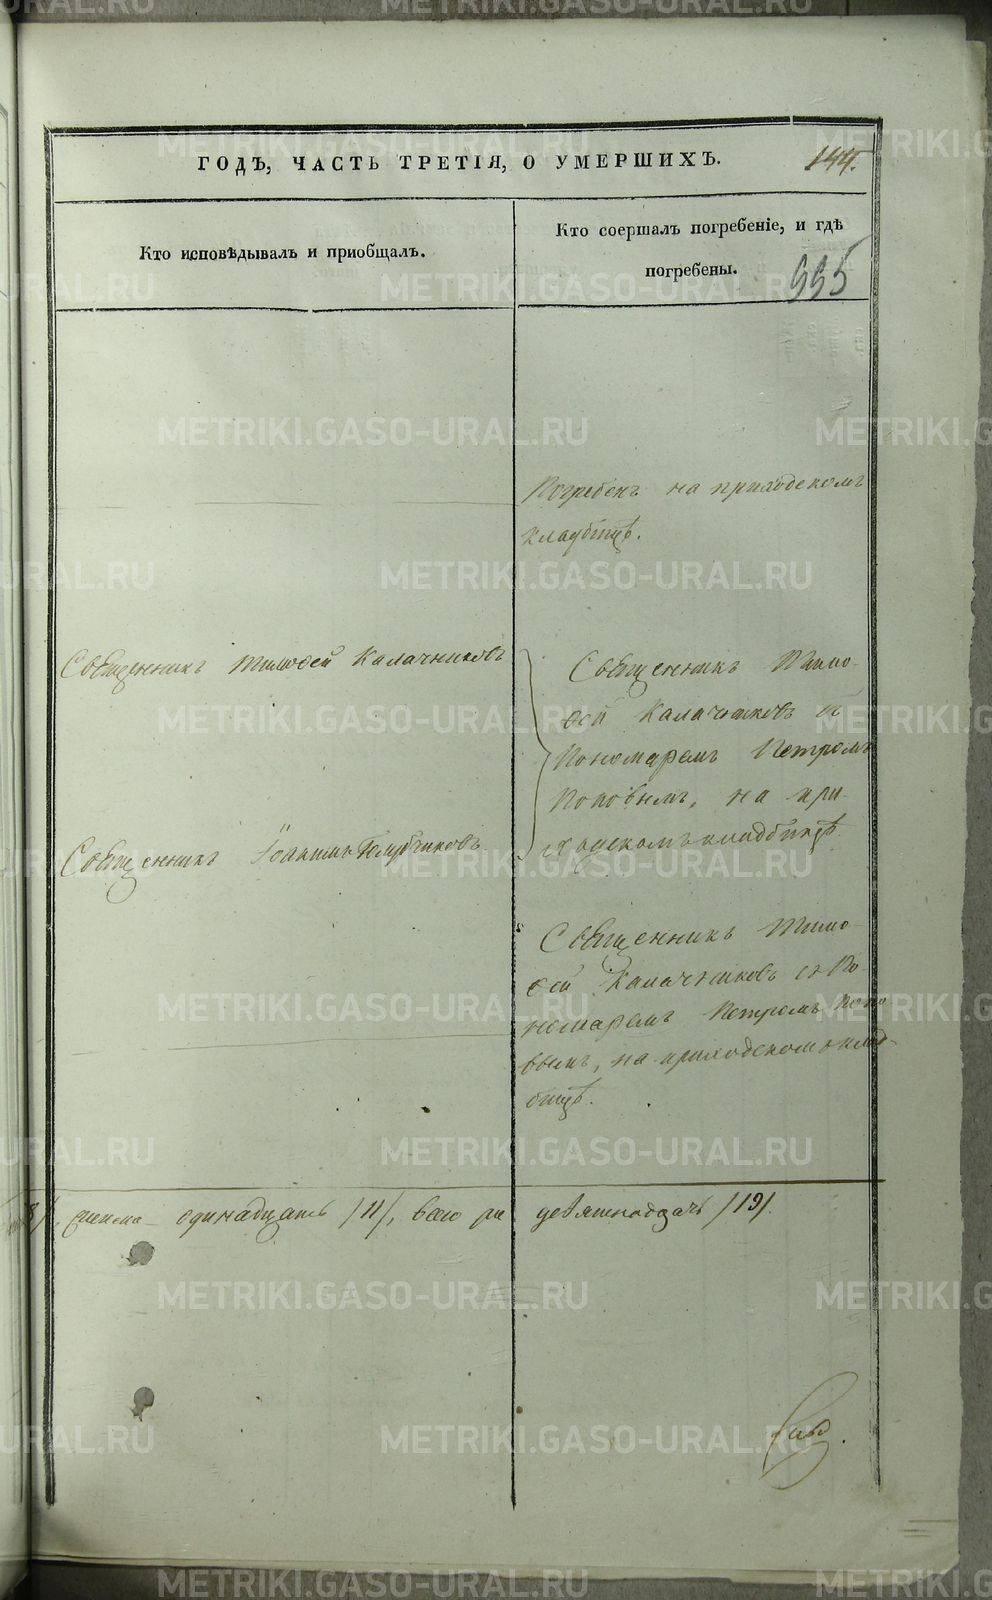 ГОДЪ, ЧАСТЬ ТРЕТІЯ, О УМЕРШИХЪ.
144.
Кто исповѣдывалъ и приобщалъ.
Кто соершалъ погребеніе, и гдѣ
погребены.
995
Погребенъ на приходскомъ
кладбищѣ.
Священникъ Тимофей Калачниковъ
Священникъ Іоакимъ
Священникъ Тимо-
фей Калачниковъ съ
Пономаремъ Петромъ
Поповымъ, на при-
ходскомъ кладбищѣ.
Священникъ Тимо-
фей Калачниковъ съ По-
номаремъ Петромъ Попо
вымъ, на приходскомъ клад-
бищѣ.
женска одинадцать /11/, всего
девятнадцать /19/.
METRIKI.GASO-URAL.RU